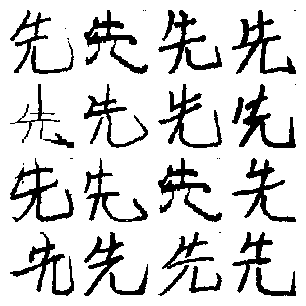 先先先先
先先先先
先先先先
先先先先